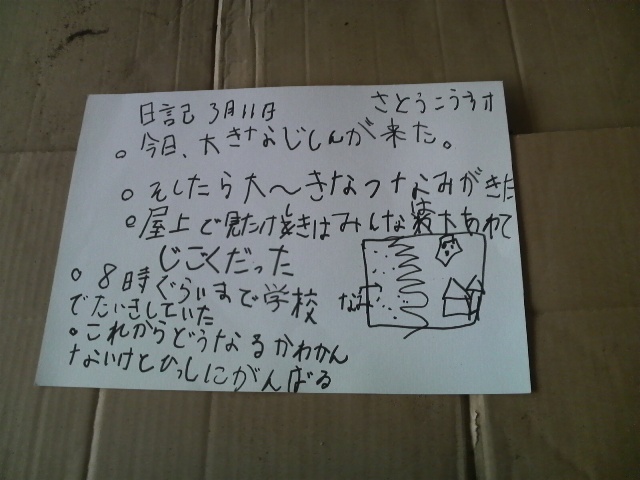 日記 3月11日 さとうこう
。今日、大きなじしんが来た。
。そしたら大〜きなつなみがきた
。屋上で見たけどときはみんな大あわて
じごくだった
。8時ぐらいまで学校
でたいきしていた
。これからどうなるかわかん
ないけとひっしにがんばる
なみ